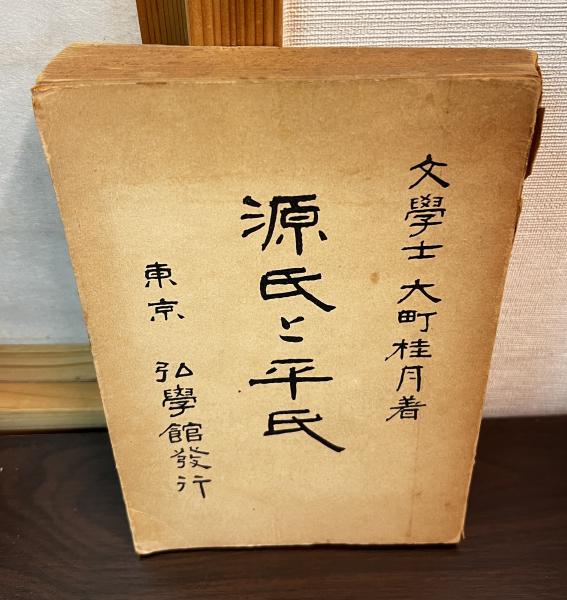 文學士 大町桂月着
源氏と平氏
東京 弘學館發行